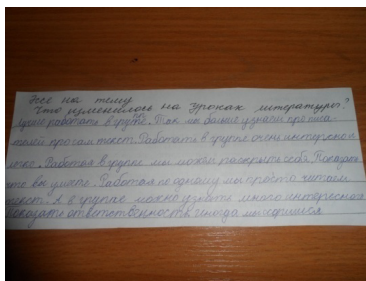 Эссе на тему
Что изменилось на уроках литературы?
Лучше работать в группе. Так мы больше узнаем про писа-
телей прогам текст. Работать в группе очень интересно и
легко. Работая в группе мы можем раскрыть себя. Показать
что вы умеете. Работая по одному мы просто читаем
текст. А в группе можно узнать много интересного
Показать ответственность иногда мы